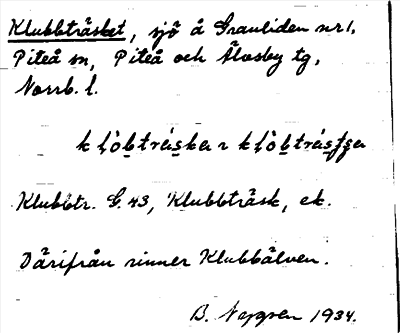 Klubbträsket, sjö å Granliden nr 1,
Piteå sn, Piteå och Älvsby tg,
Norrb. l.
Klubbtr. G. 43, Klubbträsk, ek.
Därifrån rinner Klubbälven.
B. Nygren 1934.